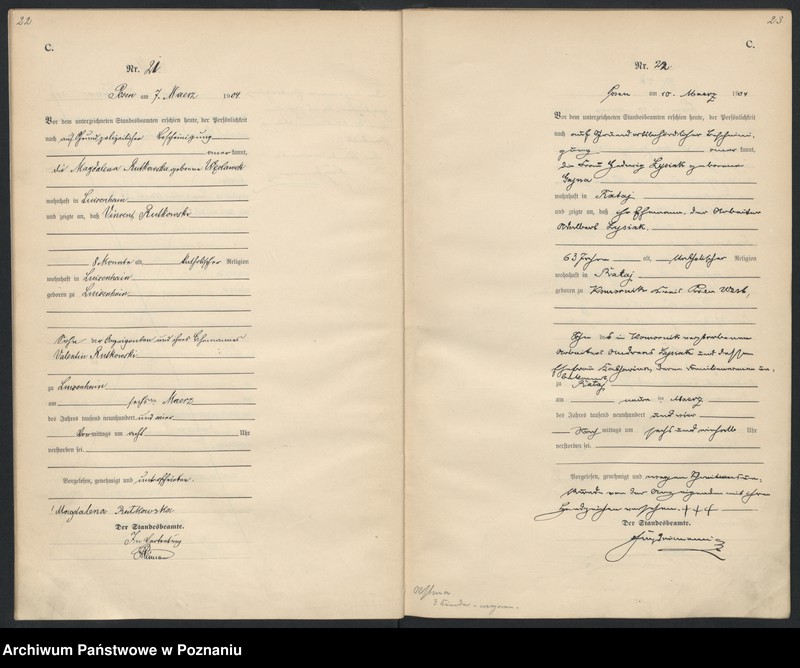 22
C.
Nr. 21.
Posen am 7. Maerz 1904.
Vor dem unterzeichneten Standesbeamten erschien heute, der Persönlichkeit
nach auf Grund polizeilicher Bescheinigung
aner kannt,
die Magdalena Rutkowska geborene
wohnhaft in Luisenhain
und zeigte an, daß Vincent Rutkowski
8 Monate alt, katholischer Religion
wohnhaft in Luisenhain
geboren zu Luisenhain
Sohn der Anzeigenden und ihres Ehemannes
Valentin Rutkowski
zu Luisenhain
am sechsten Maerz
des Jahres tausend neunhundert und vier
Vormittags um acht Uhr
verstorben sei.
Vorgelesen, genehmigt und unterschrieben.
Magdalena Rutkowska
Der Standesbeamte.
In Vertretung
23
C.
Nr. 22
Posen am 10. Maerz 1904
Vor dem unterzeichneten Standesbeamten erschien heute, der Persönlichkeit
nach auf Grund Bescheini-
gung aner kannt,
die Frau Hedwig Lysiak geborene
wohnhaft in Rataj
und zeigte an, daß ihr Ehemann, der Arbeiter
Adalbert Lysiak.
63 Jahre alt, katholischer Religion
wohnhaft in Rataj
geboren zu Komornik Kreis Posen West,
Sohn des in Komornik verstorbenen
Arbeiters Andreas Lysiak und dessen
Ehefrau Katharina, deren Familienname un-
bekannt
zu Rataj
am neunten Maerz
des Jahres tausend neunhundert und vier
Nach mittags um sechs und einhalb Uhr
verstorben sei.
Vorgelesen, genehmigt und wegen Schreibensun-
kunde von der Anzeigenden mit ihrem
Handzeichen versehen. +++
Der Standesbeamte.
Archiwum Państwowe w Poznaniu